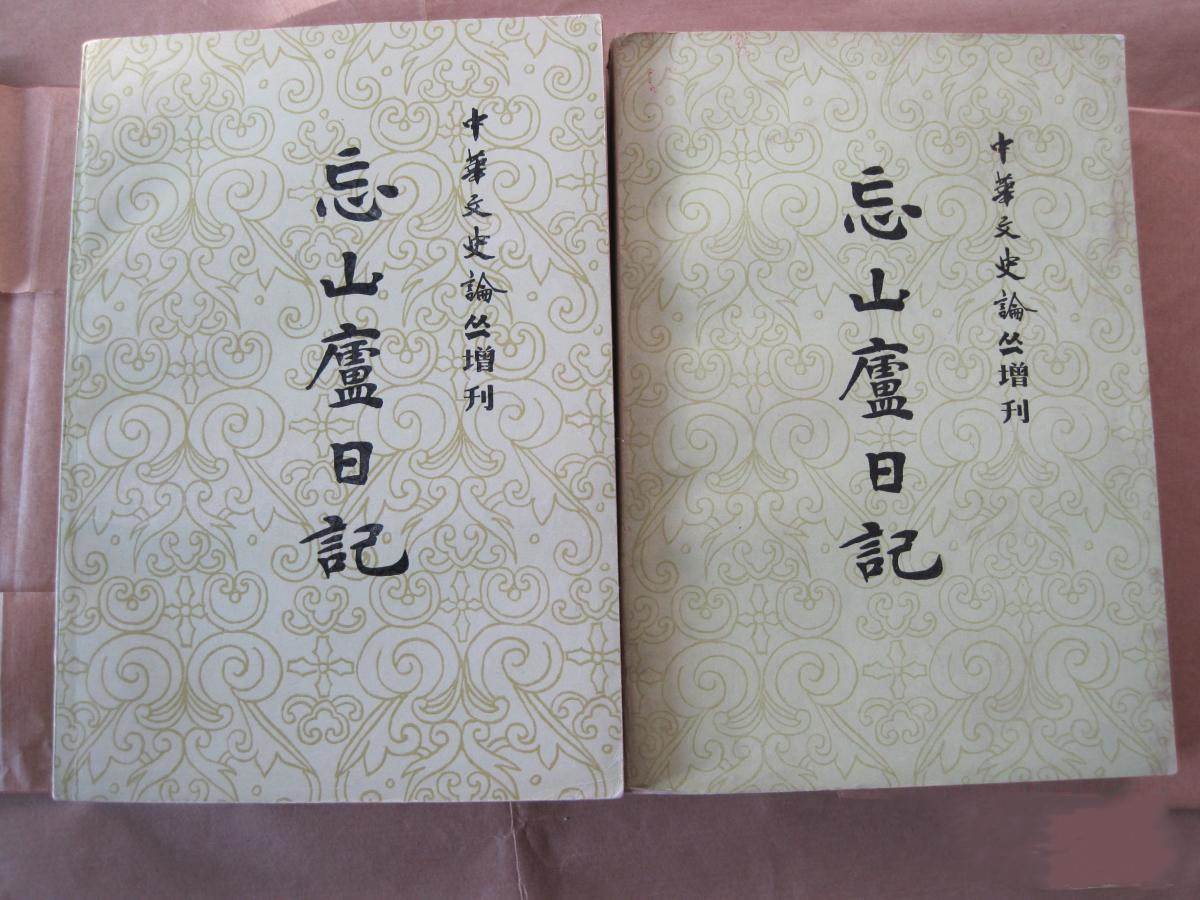 中華文史論丛增刊
忘山廬日記
中華文史論丛增刊
忘山廬日記